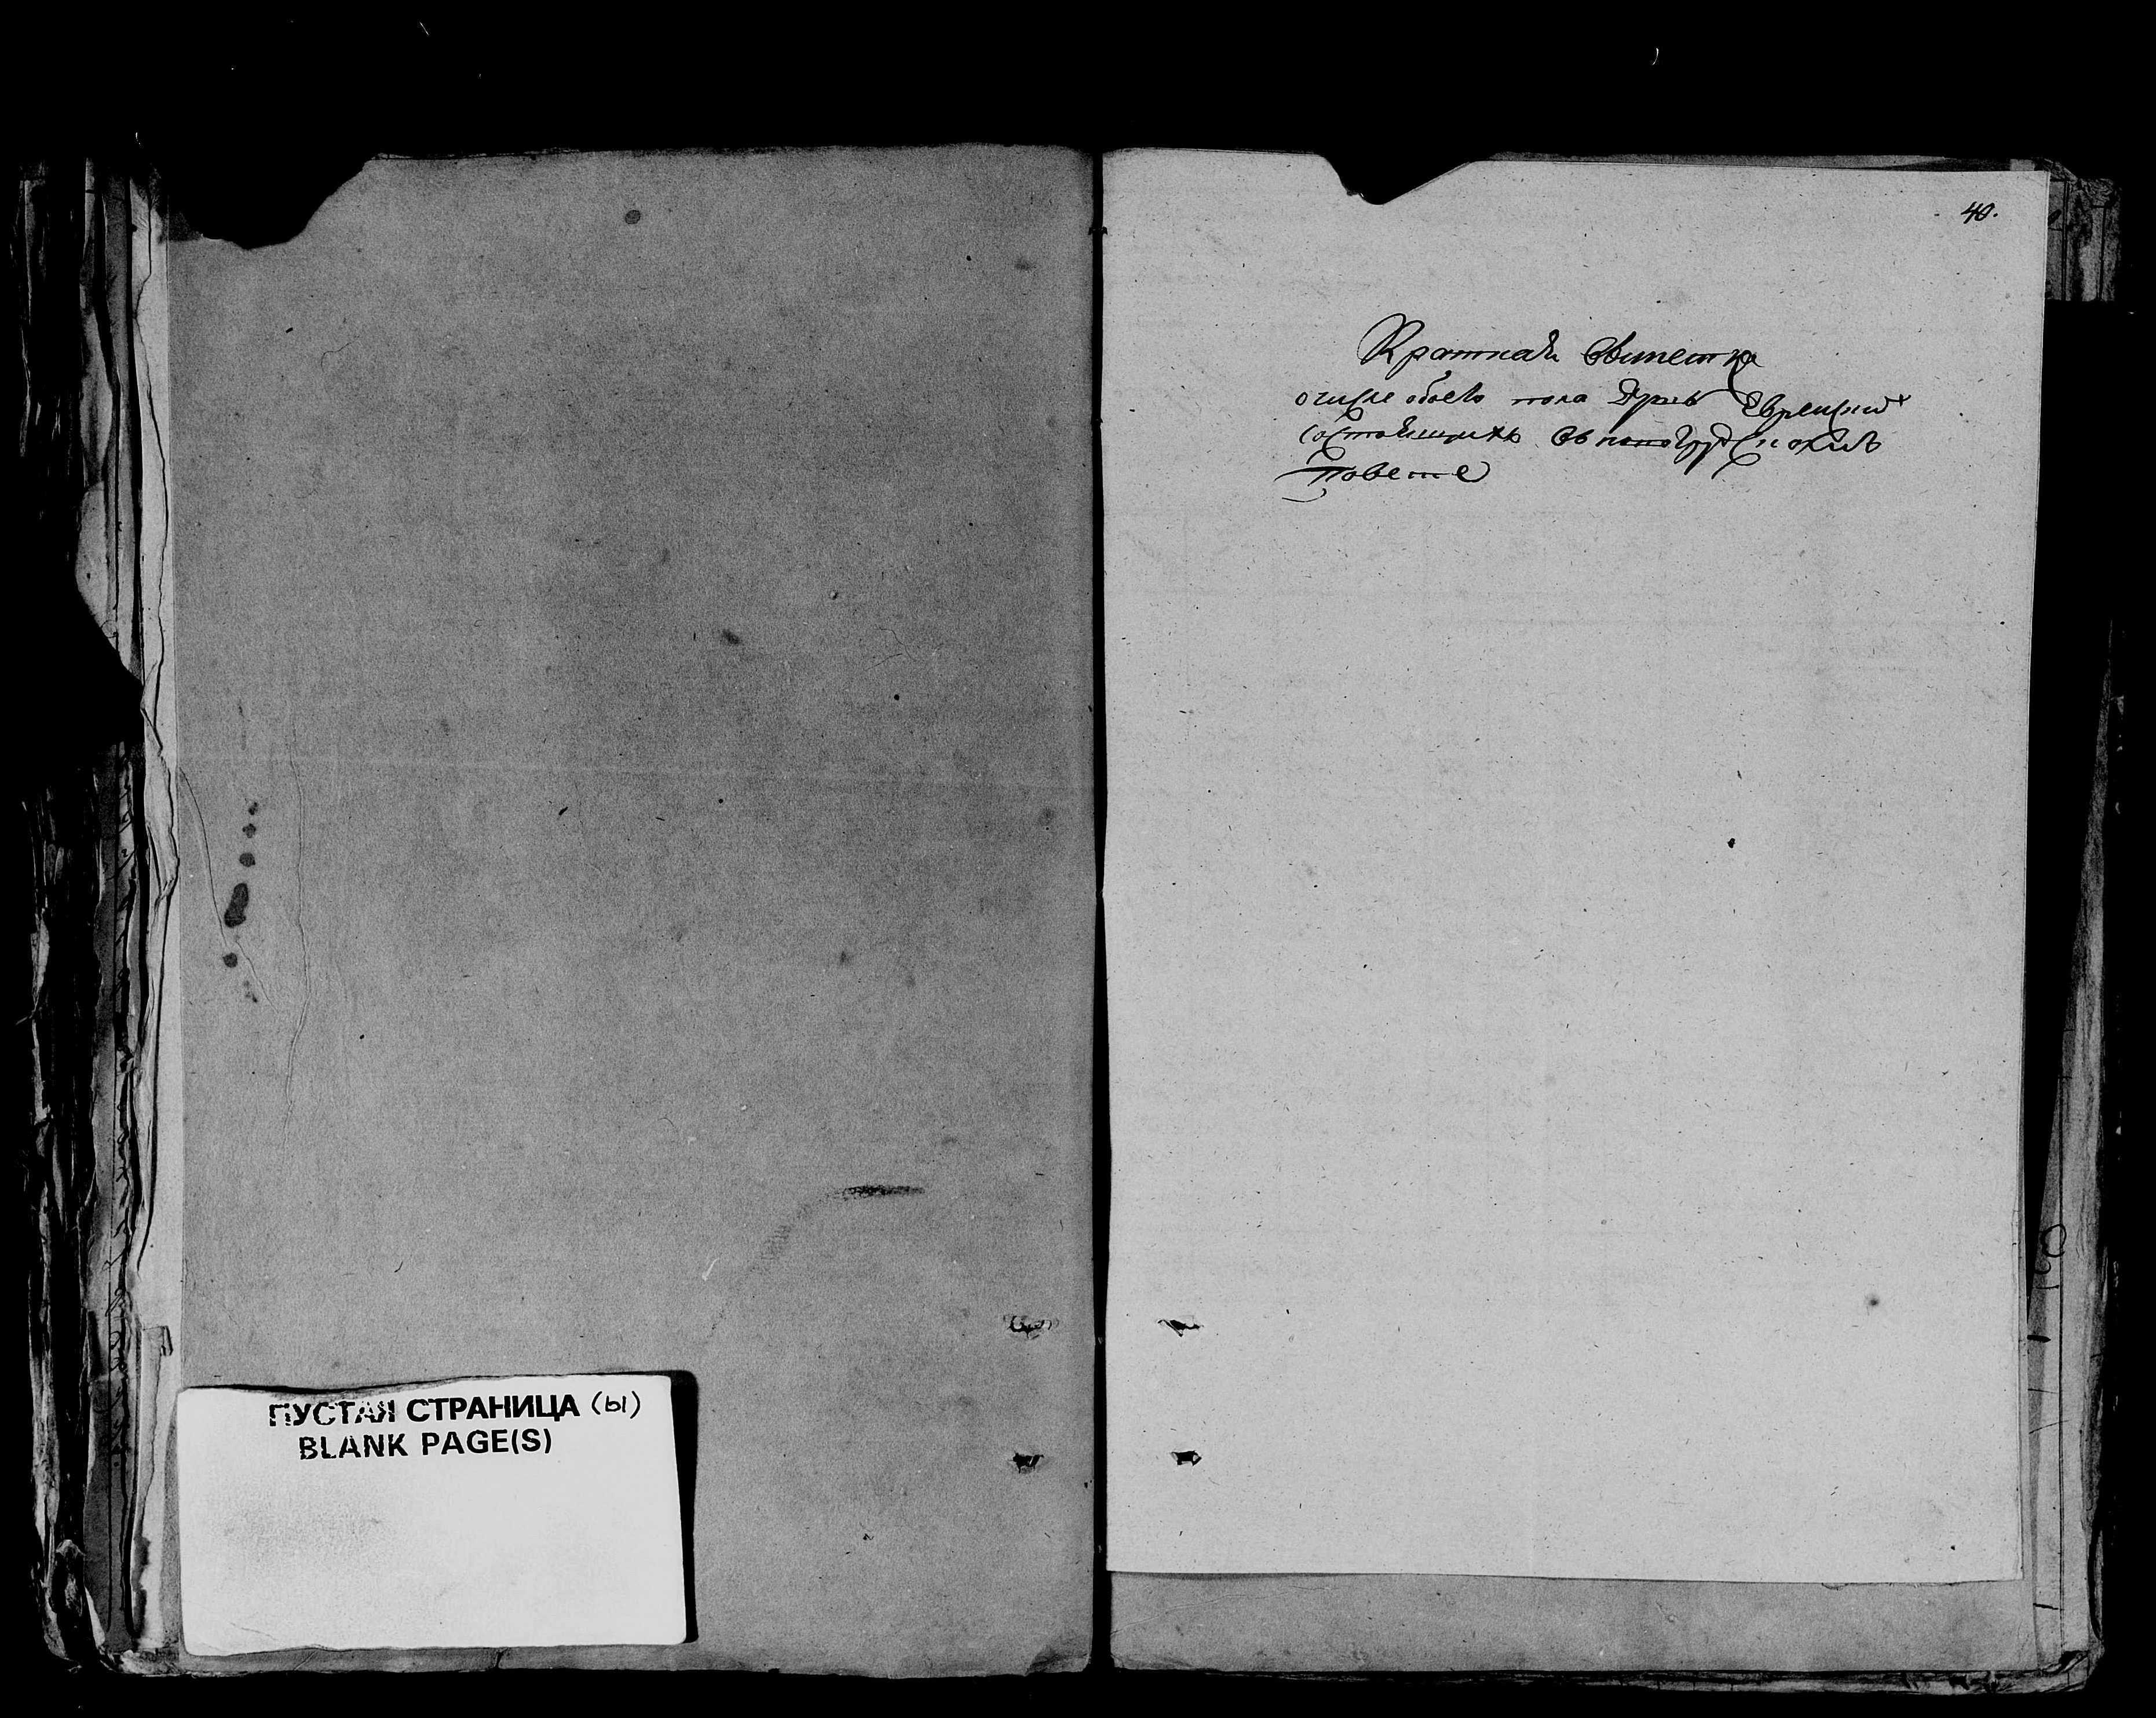 ПУСТАЯ СТРАНИЦА (ы)
BLANK PAGE(S)
40.
Краткая
о числе обоего пола душъ Еврейских
состоящихъ въ новогрудскомъ
Повете